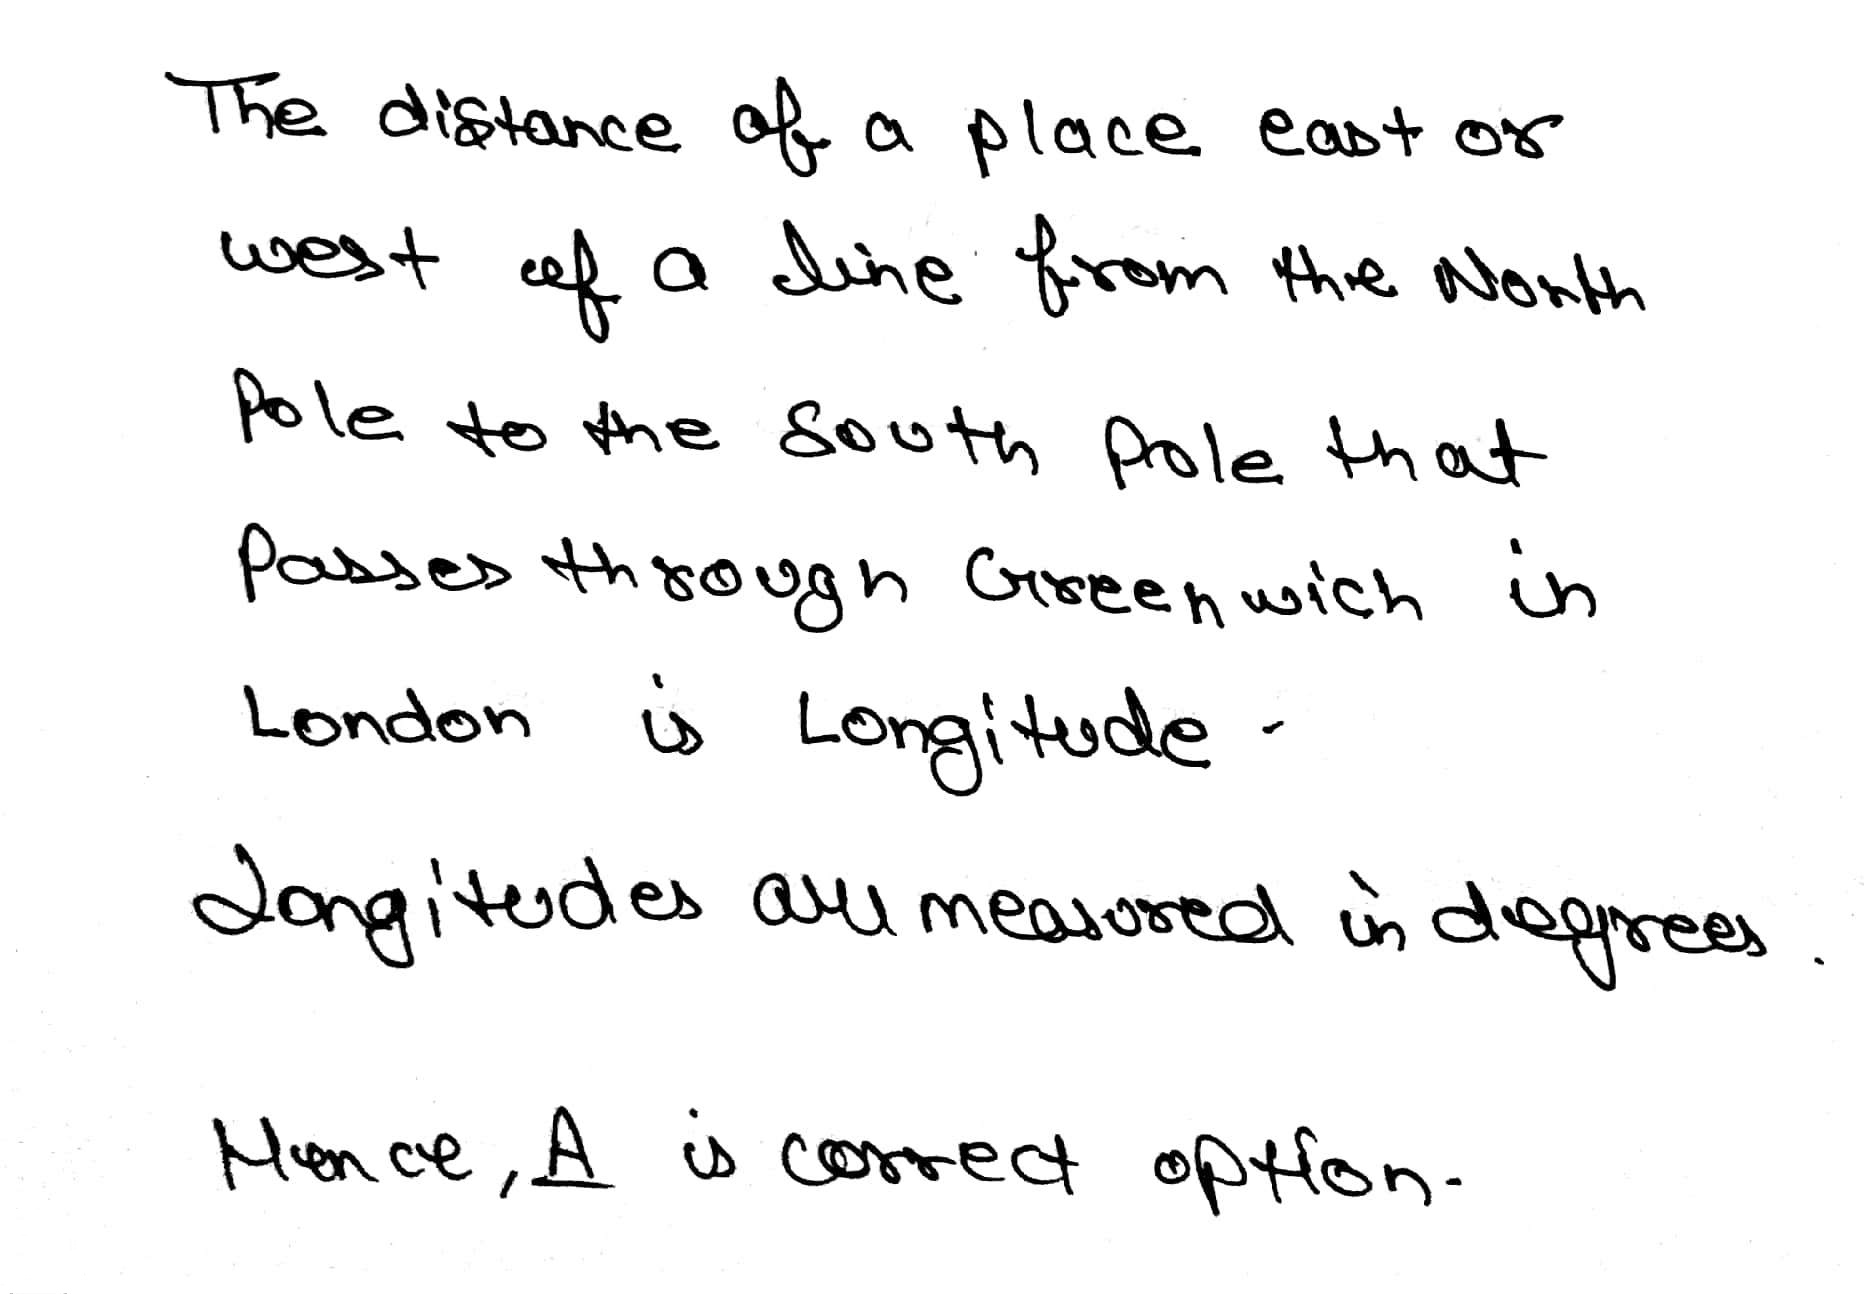 The distance of a place east or
west of a line from the North
Pole to the South Pole that
Passes through Greenwich in
London is Longitude.
Longitudes are measured in degrees.
Hence, A is correct option.